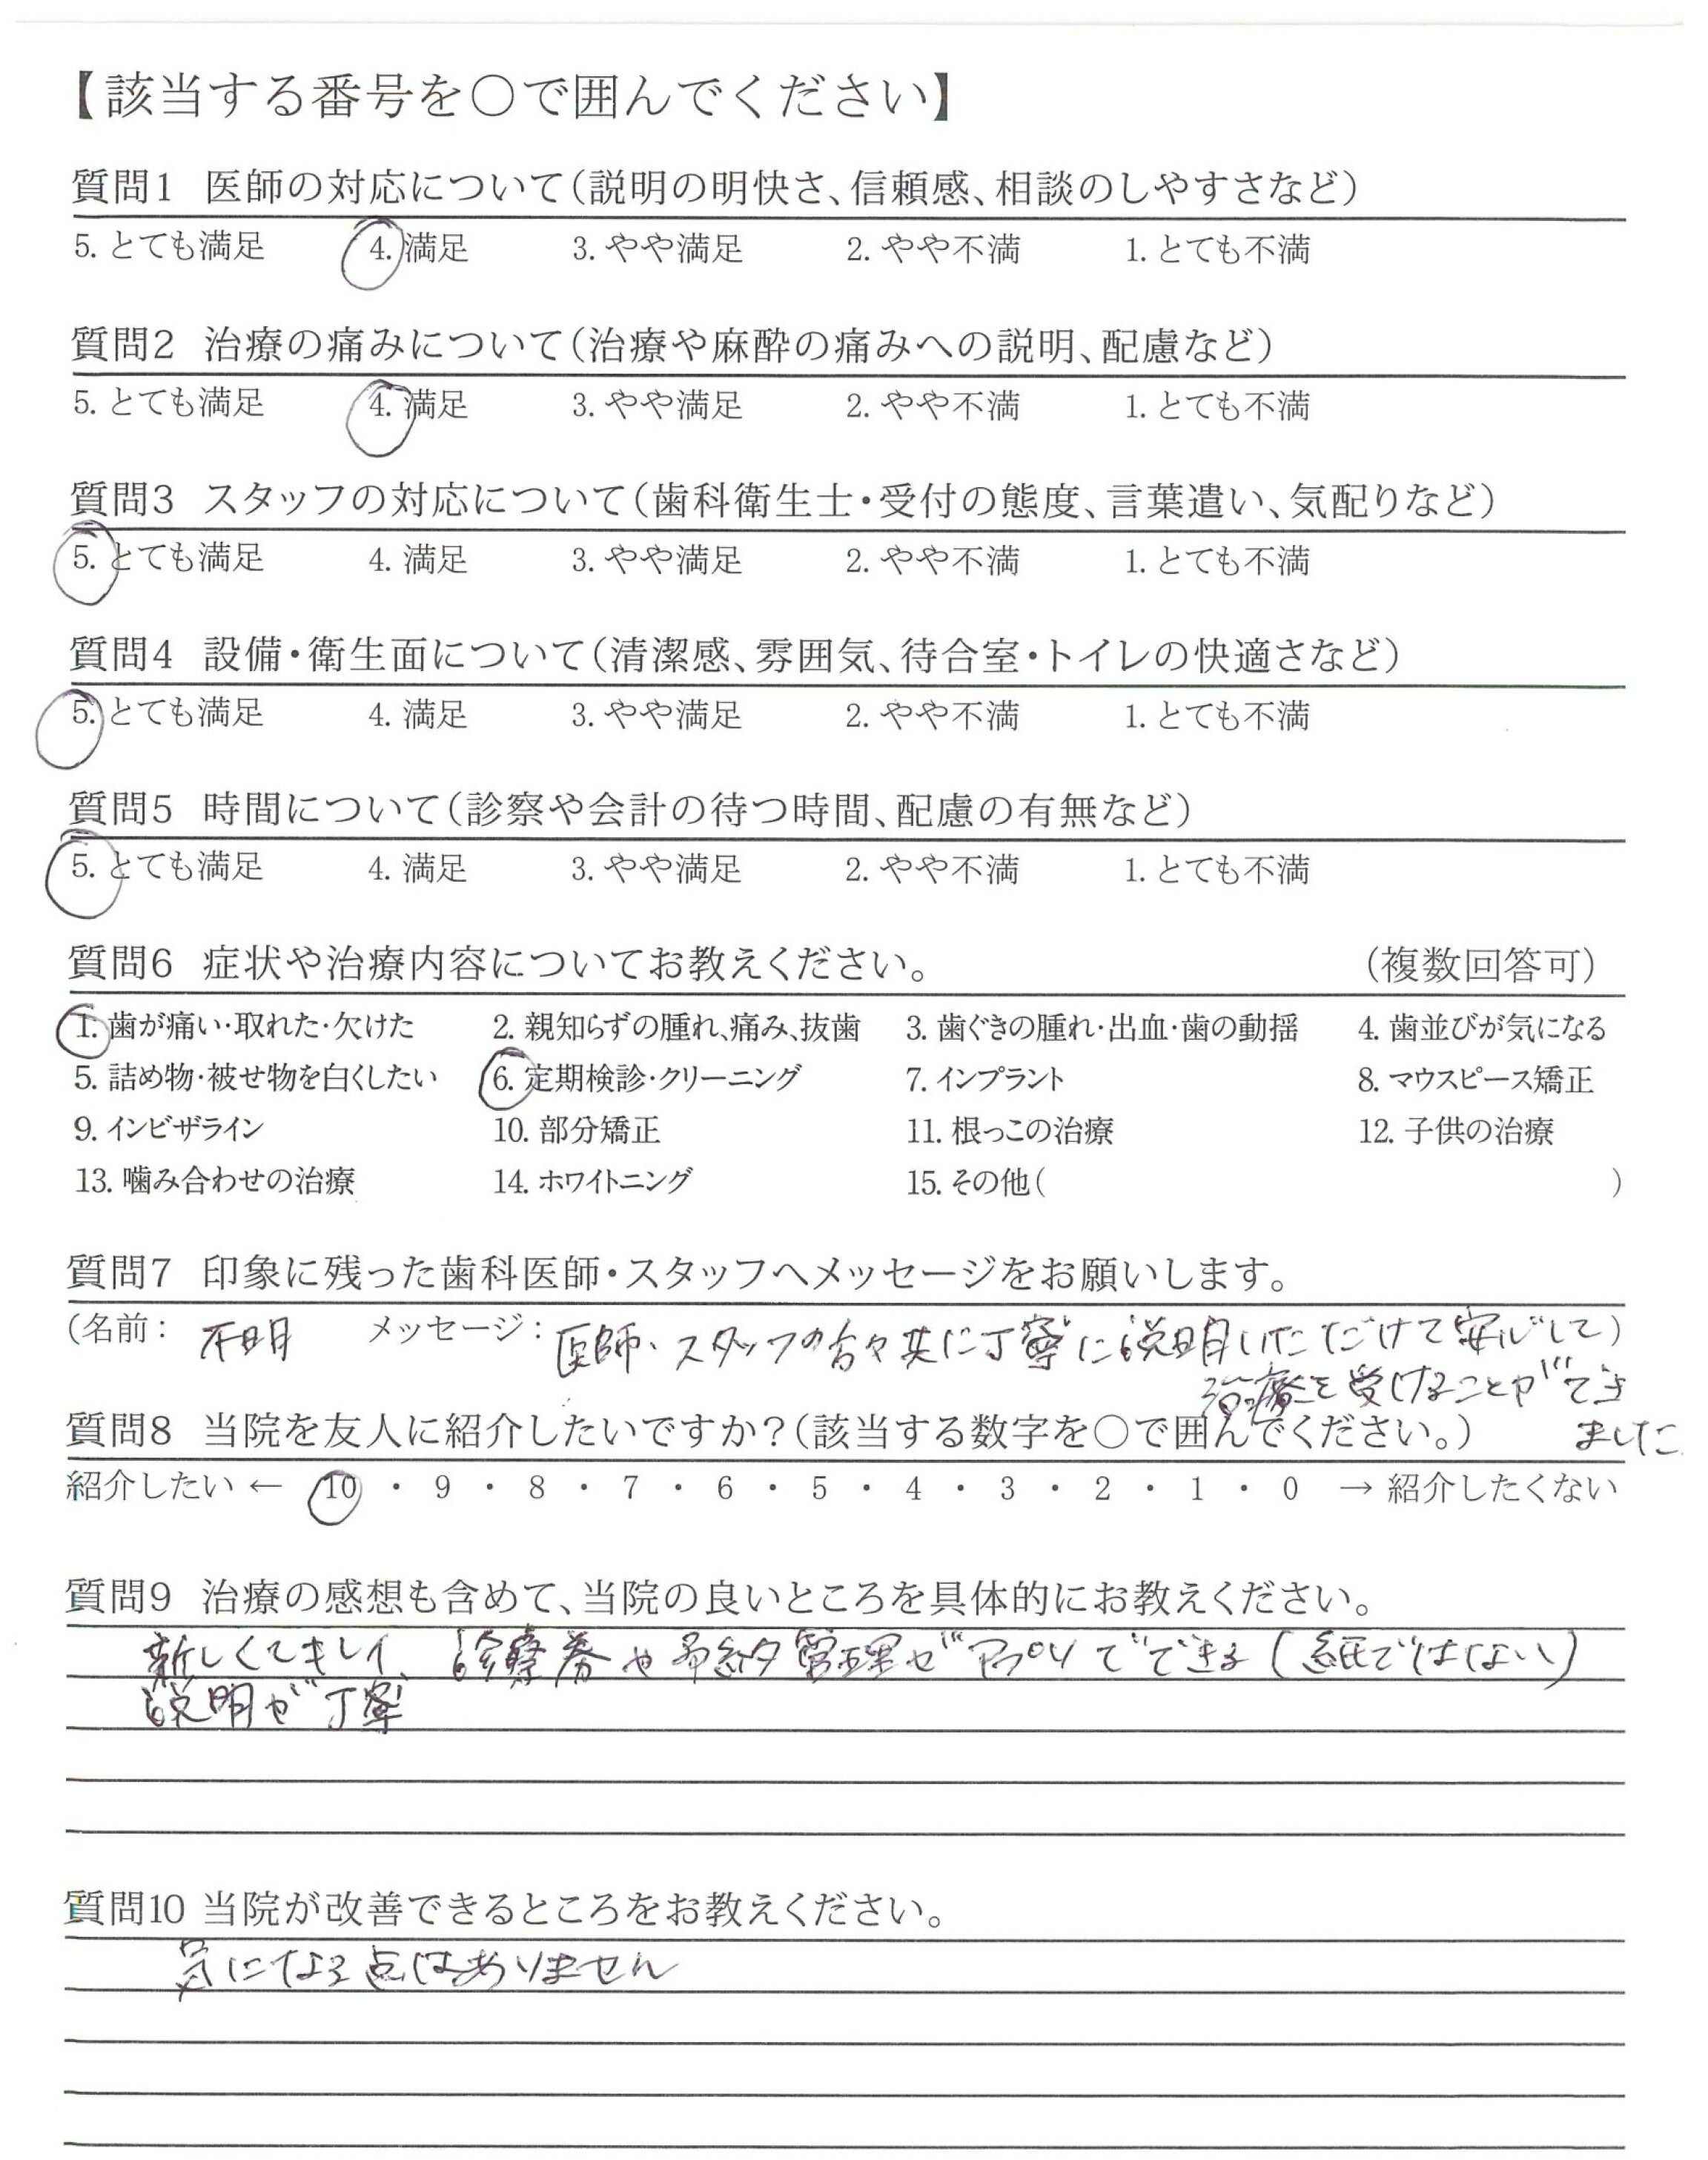 【該当する番号を○で囲んでください】
質問1 医師の対応について(説明の明快さ、信頼感、相談のしやすさなど)
5. とても満足 4. 満足 3. やや満足 2. やや不満 1. とても不満
質問2 治療の痛みについて(治療や麻酔の痛みへの説明、配慮など)
5. とても満足 4. 満足 3. やや満足 2. やや不満 1. とても不満
質問3 スタッフの対応について(歯科衛生士・受付の態度、言葉遣い、気配りなど)
5. とても満足 4. 満足 3. やや満足 2. やや不満 1. とても不満
質問4 設備・衛生面について(清潔感、雰囲気、待合室・トイレの快適さなど)
5. とても満足 4. 満足 3. やや満足 2. やや不満 1. とても不満
質問5 時間について(診察や会計の待つ時間、配慮の有無など)
5. とても満足 4. 満足 3. やや満足 2. やや不満 1. とても不満
質問6 症状や治療内容についてお教えください。 (複数回答可)
1. 歯が痛い・取れた・欠けた 2. 親知らずの腫れ、痛み、抜歯 3. 歯ぐきの腫れ・出血・歯の動揺 4. 歯並びが気になる
5. 詰め物・被せ物を白くしたい 6. 定期検診・クリーニング 7. インプラント 8. マウスピース矯正
9. インビザライン 10. 部分矯正 11. 根っこの治療 12. 子供の治療
13. 噛み合わせの治療 14. ホワイトニング 15. その他( )
質問7 印象に残った歯科医師・スタッフへメッセージをお願いします。
(名前: 不明 メッセージ: 医師・スタッフの方々共に丁寧に説明いただけて安心して)
治療を受けることができ
ました
質問8 当院を友人に紹介したいですか?(該当する数字を○で囲んでください。)
紹介したい ← 10 ・ 9 ・ 8 ・ 7 ・ 6 ・ 5 ・ 4 ・ 3 ・ 2 ・ 1 ・ 0 → 紹介したくない
質問9 治療の感想も含めて、当院の良いところを具体的にお教えください。
新しくてキレイ、診察券や予約管理がアプリでできる(紙ではない)
説明が丁寧
質問10 当院が改善できるところをお教えください。
気になる点はありません